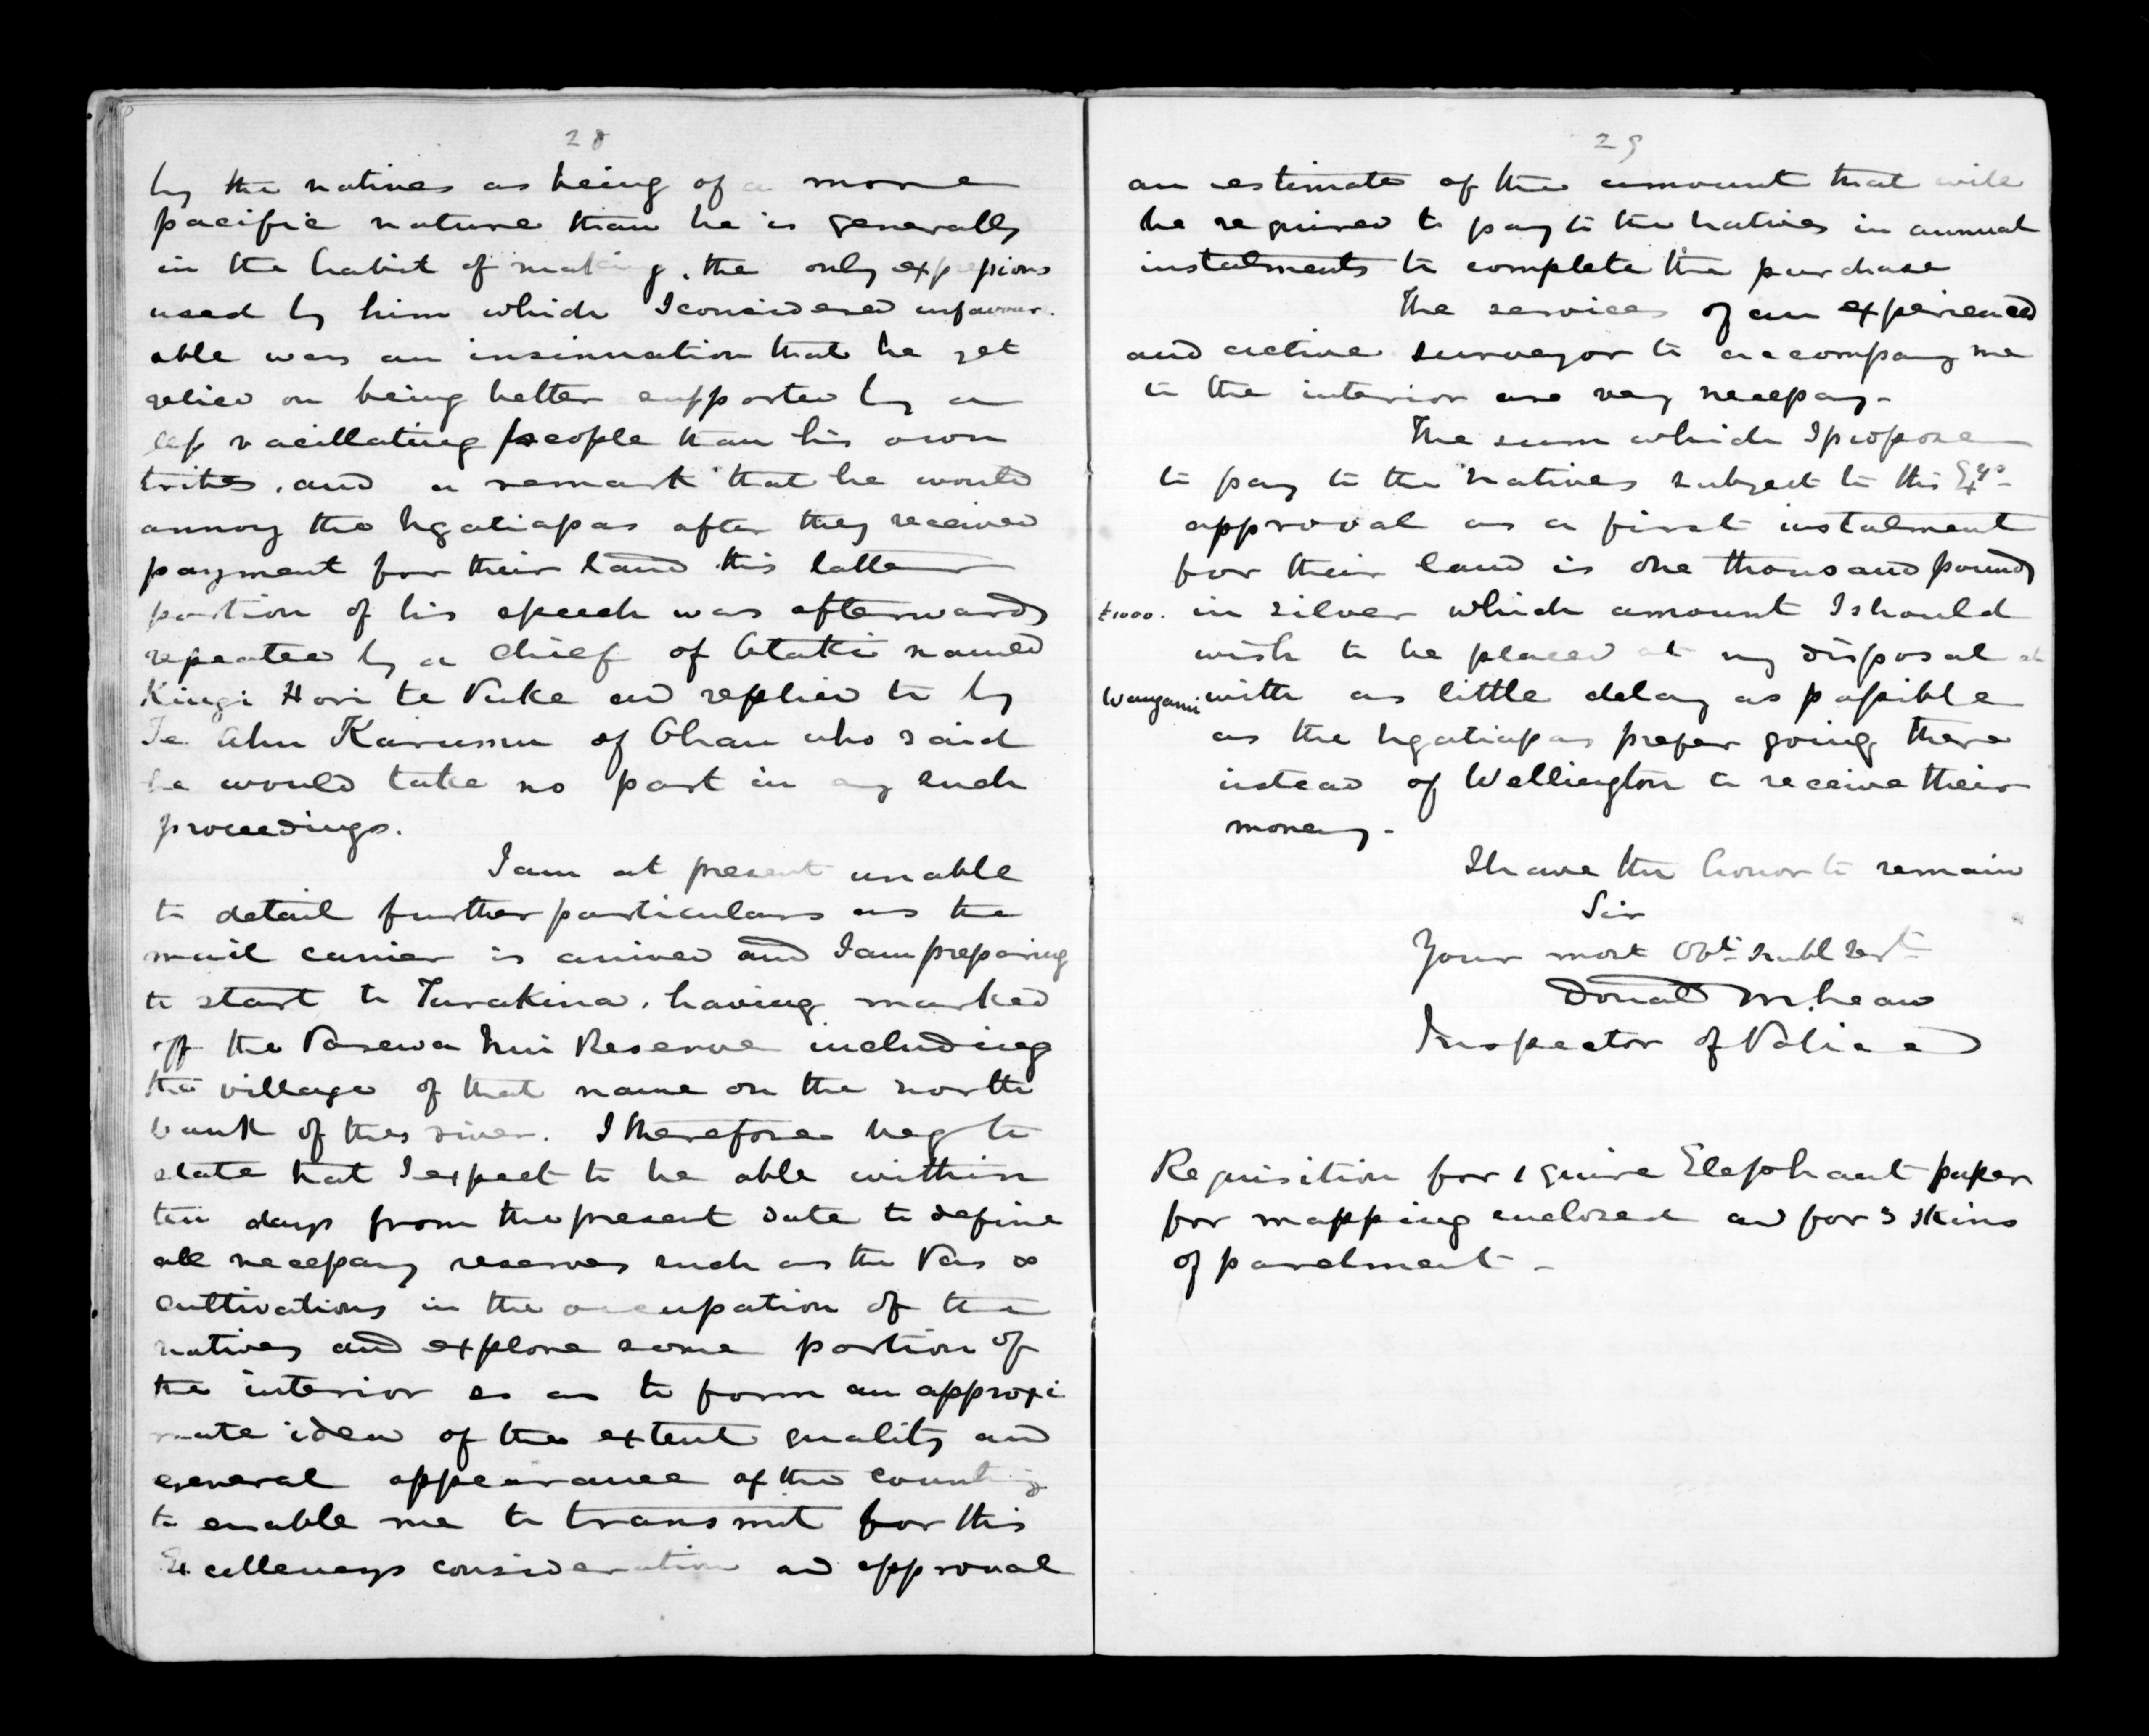 28
by the natives as being of a more
pacific nature than he is generally
in the habit of making, the only expressions
used by him which I considered unfavour-
able was an insinuation that he yet
relied on being better supported by a
less vacillating people than his own
tribes, and a remark that he would
annoy the Ngatiapas after they received
payment for their land this latter
portion of his speech was afterwards
repeated by a chief of Otaki named
Kingi Hori te Puke and replied to by
Te Ahu Karamu of Ohau who said
he would take no part in any such
proceedings.
I am at present unable
to detail further particulars as the
mail carrier is arrived and I am preparing
to start to Turakina, having marked
off the Parewa Nui Reserve including
the village of that name on the north
bank of the river. I therefore beg to
state that I expect to be able within
ten days from the present date to define
all necessary reserves such as the Pas &
cultivations in the occupation of the
natives and explore some portion of
the interior so as to form an approxi
mate idea of the extent quality and
general appearance of the country
to enable me to transmit for His
Excellencys consideration and approval
29
an estimate of the amount that will
be required to pay to the natives in annual
instalments to complete the purchase
The services of an experienced
and active surveyor to accompany me
to the interior are very necessary -
The sum which I propose
to pay to the natives subject to His Exys
approval as a first instalment
for their land is one thousand pounds
£1000. in silver which amount I should
wish to be placed at my disposal at
Wanganui with as little delay as possible
as the Ngatiapas prefer going there
instead of Wellington to receive their
money -
I have the honor to remain
Sir
Your most Obt humbl Servt
Donald McLean
Inspector of Police
Requisition for 1 quire Elephant paper
for mapping enclosed and for 3 skins
of parchment -